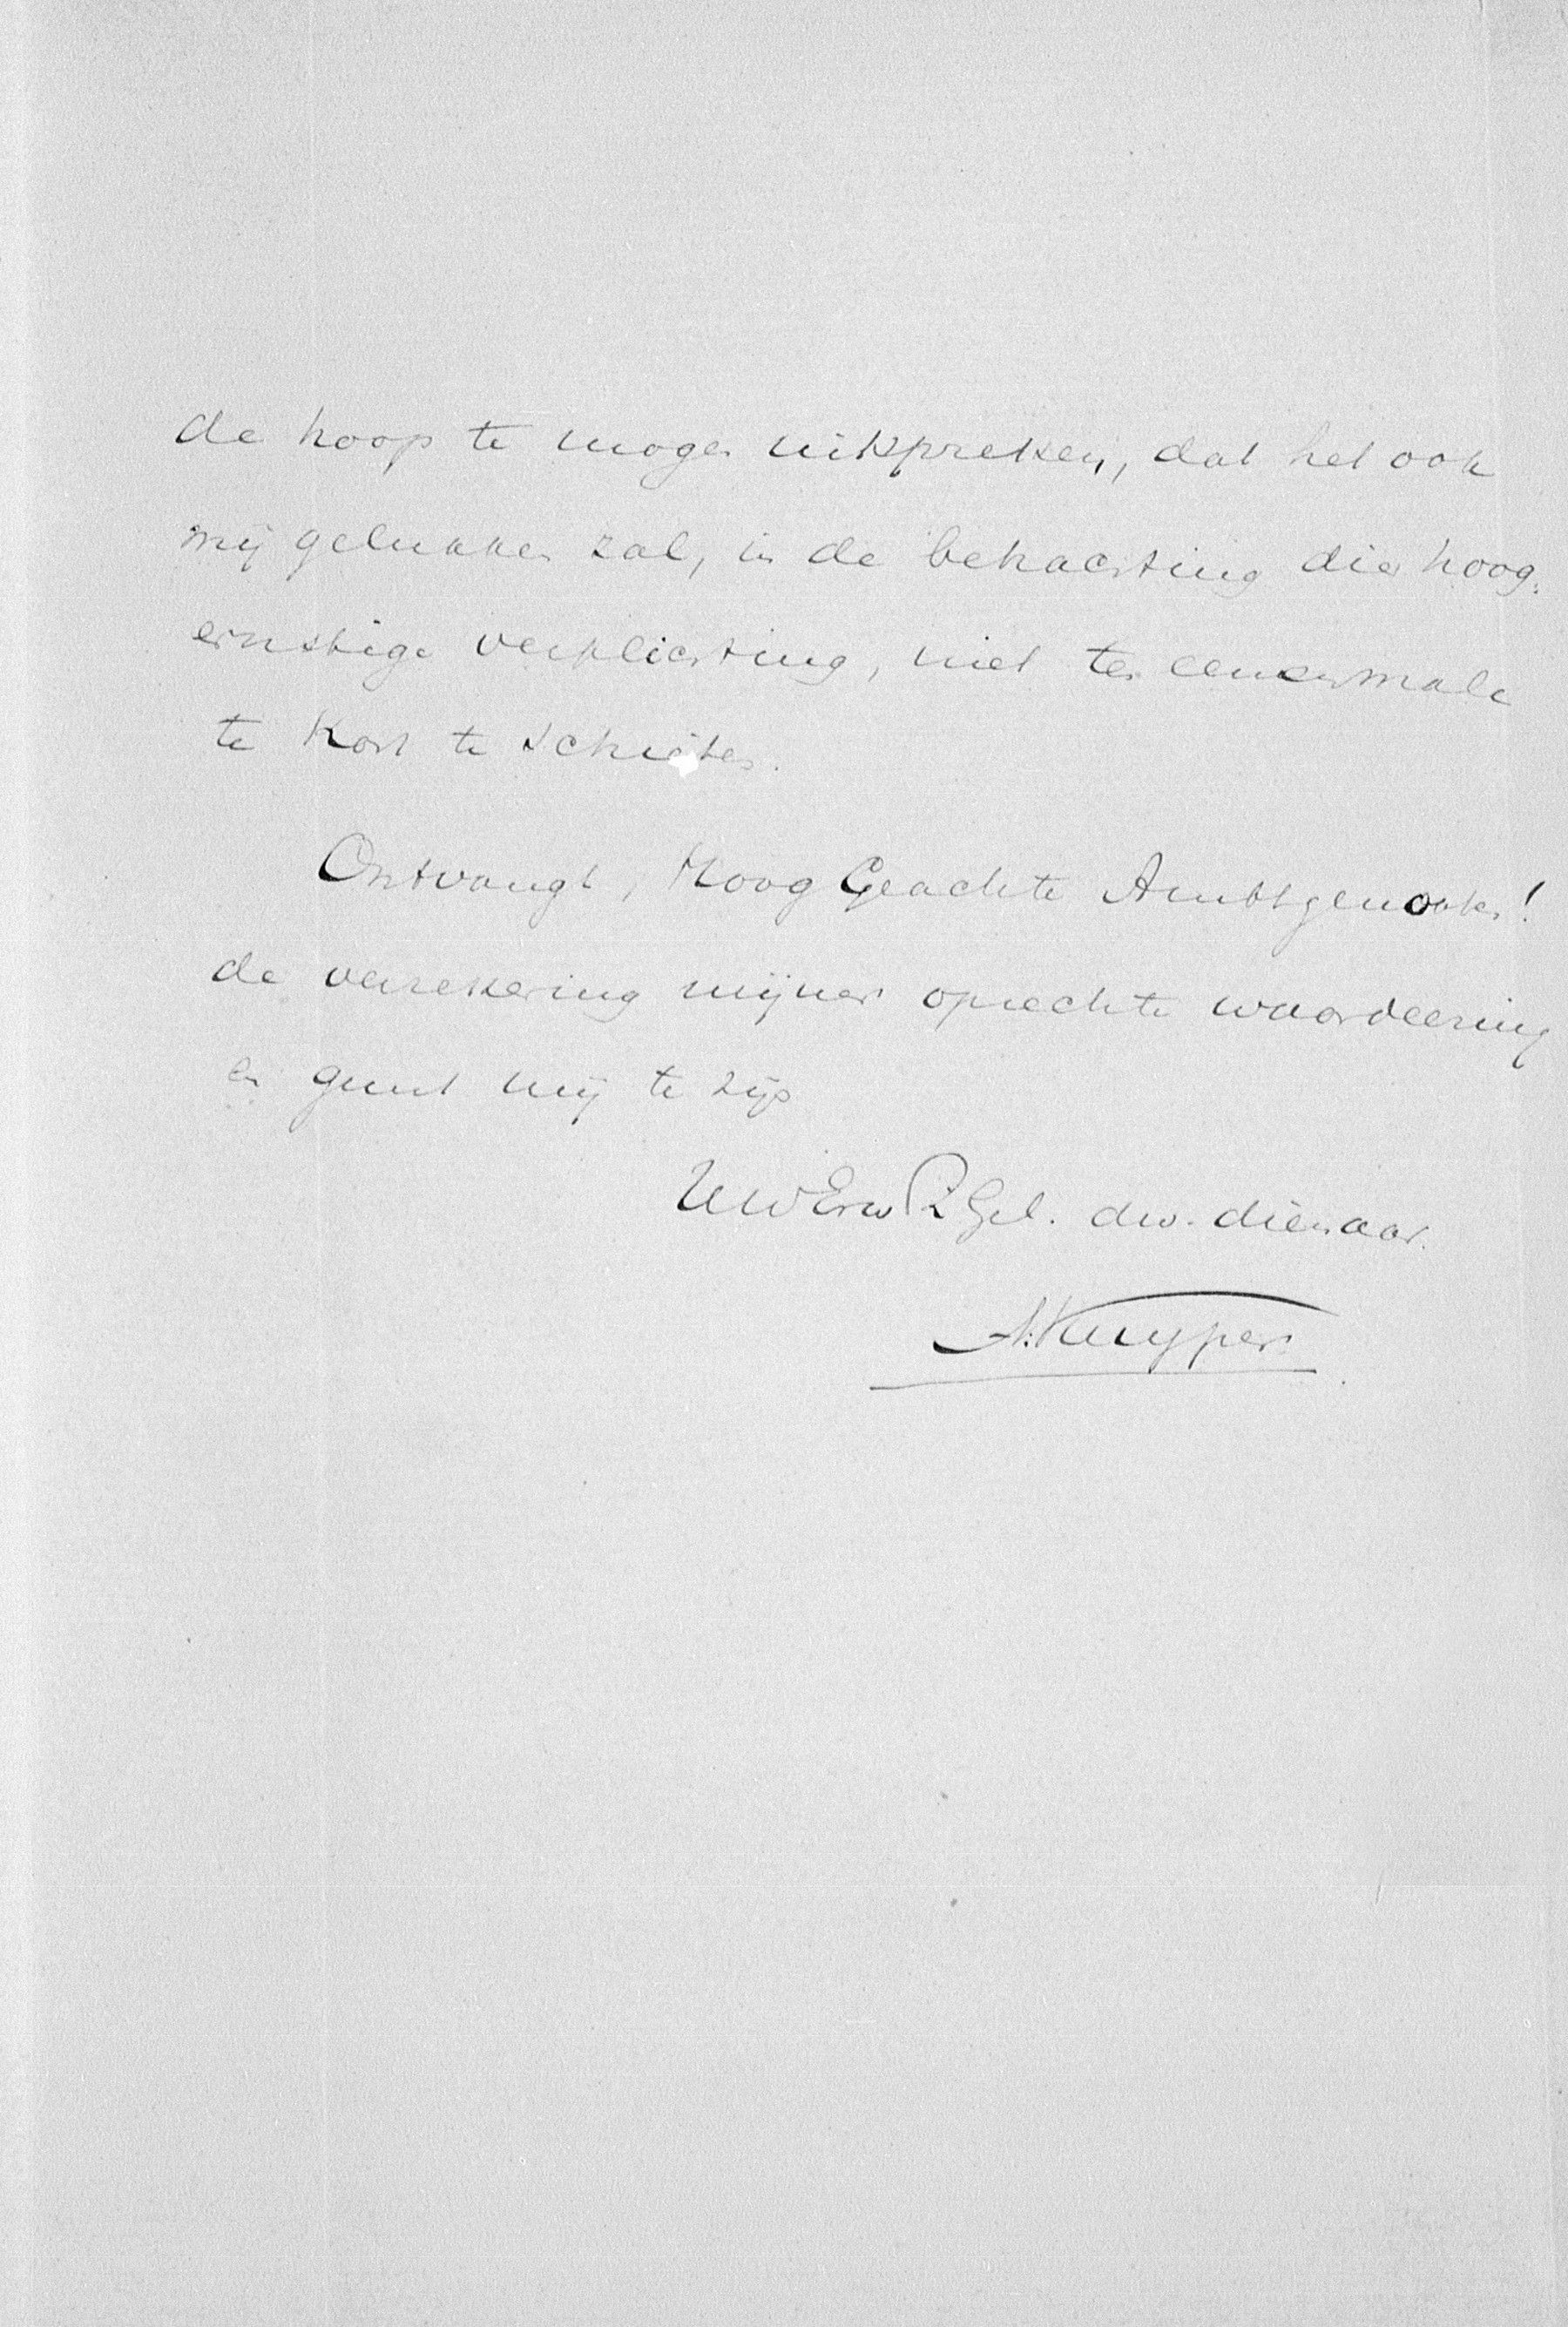 de hoop te mogen uitspreken, dat het ook
mij gelukken zal, in de betrachting dier hoog-
ernstige verplichting, niet ten eenenmale
te kort te schieten.
Ontvangt, Hoog Geachte Ambtgenooten!
de verzekering mijner oprechte waardeering
en gunt mij te zijn
UwEerw Gel. dw. dienaar.
A. Kuyper